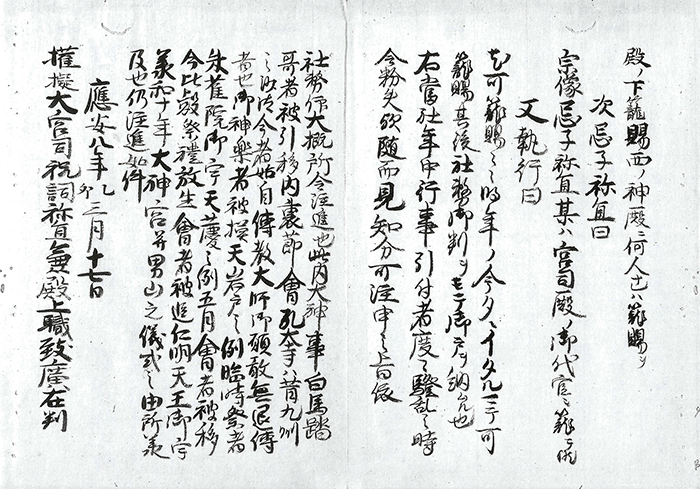 殿ノ下籠賜西ノ神殿ニ何人モハ籠賜ヲ
次忌子祢宜曰
宗像忌子祢宜某ハ宮司殿ノ御代官ニ籠ラ
又執行曰
可籠賜之時年ノ今夕イタルマテ可
籠賜其後社務御判ヲモテ御戸ヲ納ル也
右當社年中行事引付者度々騒乱之時
令粉失欤随而見知分可注申之上曰依
社務仰大概所令注進也此内大神事白馬踏
哥者被引移内裏節會孔大寺者昔九州
之今者始自傳教大師御願敢無退傳
者也御神樂者被摸天岩戸之例臨時祭者
朱雀院御宇天慶之例五月會者被移
今比叡祭禮放生會者被追仁明天王御宇
承和十年大神宮并男山之儀式之由所承
及也仍注進如件
應安八年乙卯三月十七日
權擬大宮司祝詞祢宜兼殿上職致廣在判